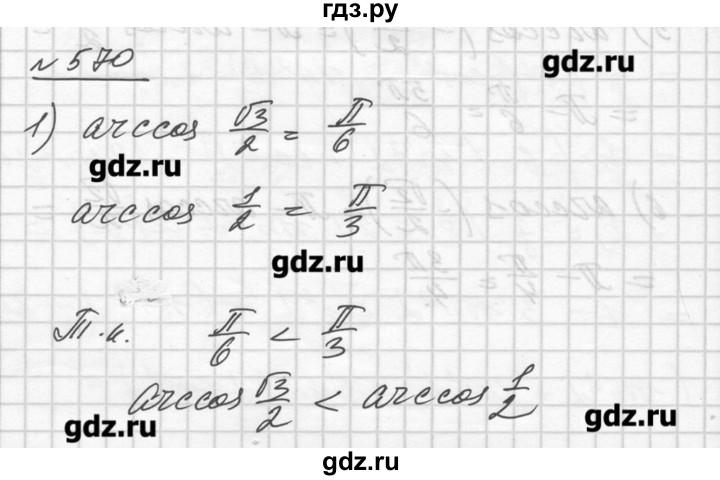 гдз.ру
№ 570
gdz.ru
1) arccos √3/2 = π/6
gdz.ru
arccos 1/2 = π/3
gdz.ru
Т.к. π/6 < π/3
arccos √3/2 < arccos 1/2
gdz.ru
gdz.ru
gdz.ru